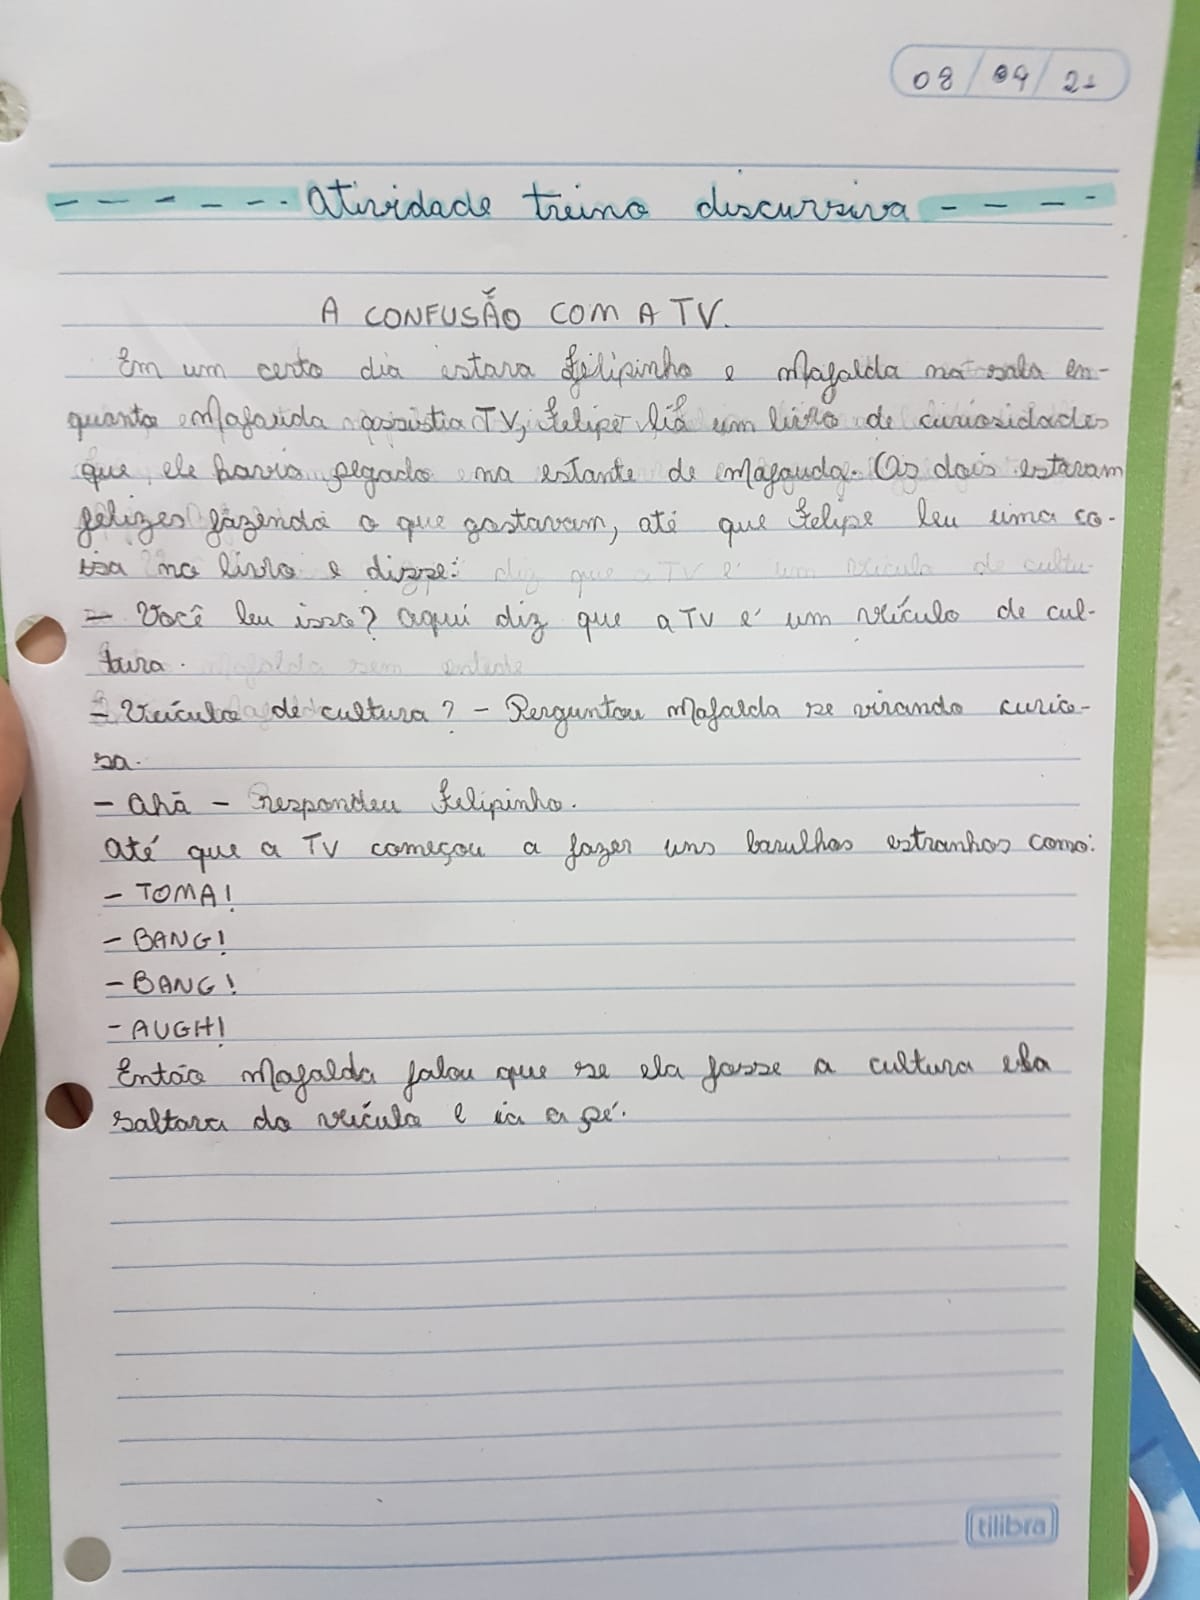 08/04/21
Atividade treino discursiva
A CONFUSÃO COM A TV.
Em um certo dia estava Felipinho e Mafalda na sala en-
quanto Mafauda assistia TV, Felipe lia um livro de curiosidades
que ele havia pegado na estante de Mafauda. Os dois estavam
felizes fazendo o que gostavam, até que Felipe leu uma co-
isa no livro e disse:
- Você leu isso? Aqui diz que a TV é um veículo de cul-
tura.
- Veículo de cultura? - Perguntou Mafalda se virando curio-
sa.
- Ahã - Respondeu Felipinho.
Até que a TV começou a fazer uns barulhos estranhos como:
- TOMA!
- BANG!
- BANG!
- AUGH!
Então Mafalda falou que se ela fosse a cultura ela
saltava do veículo e ia a pé.
tilibra